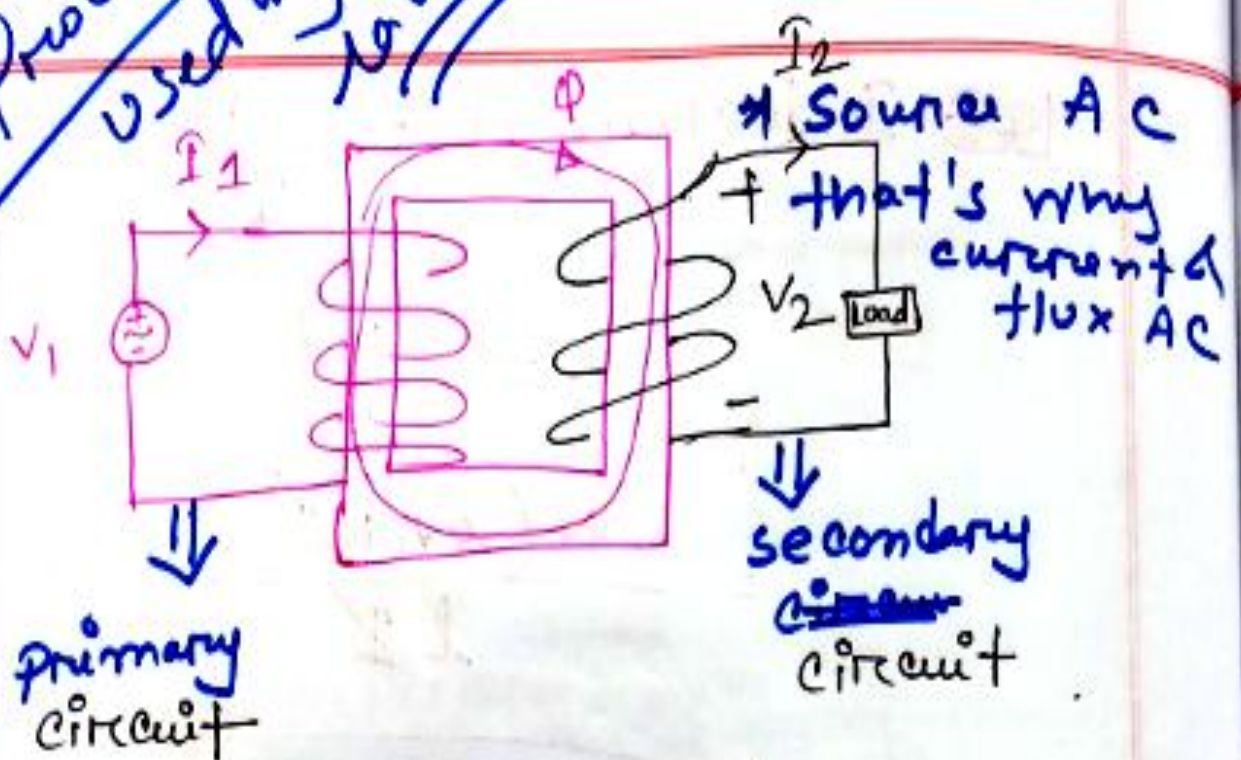 used
I1
Φ
I2
* Source AC
that's why
current &
flux AC
V1
+
V2
Load
-
primary
circuit
secondary
circuit